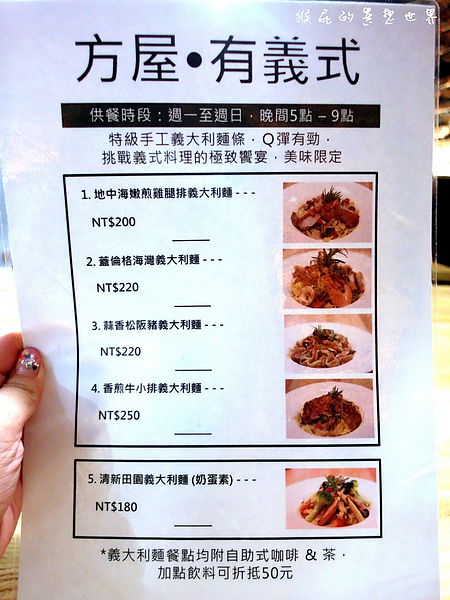 猴屁的異想世界
方屋•有義式
供餐時段：週一至週日，晚間5點–9點
特級手工義大利麵條，Q彈有勁，
挑戰義式料理的極致饗宴，美味限定
1. 地中海嫩煎雞腿排義大利麵 - - -
NT$200
2. 蓋倫格海灣義大利麵 - - -
NT$220
3. 蒜香松阪豬義大利麵 - - -
NT$220
4. 香煎牛小排義大利麵 - - -
NT$250
5. 清新田園義大利麵 (奶蛋素) - - -
NT$180
*義大利麵餐點均附自助式咖啡 & 茶，
加點飲料可折抵50元